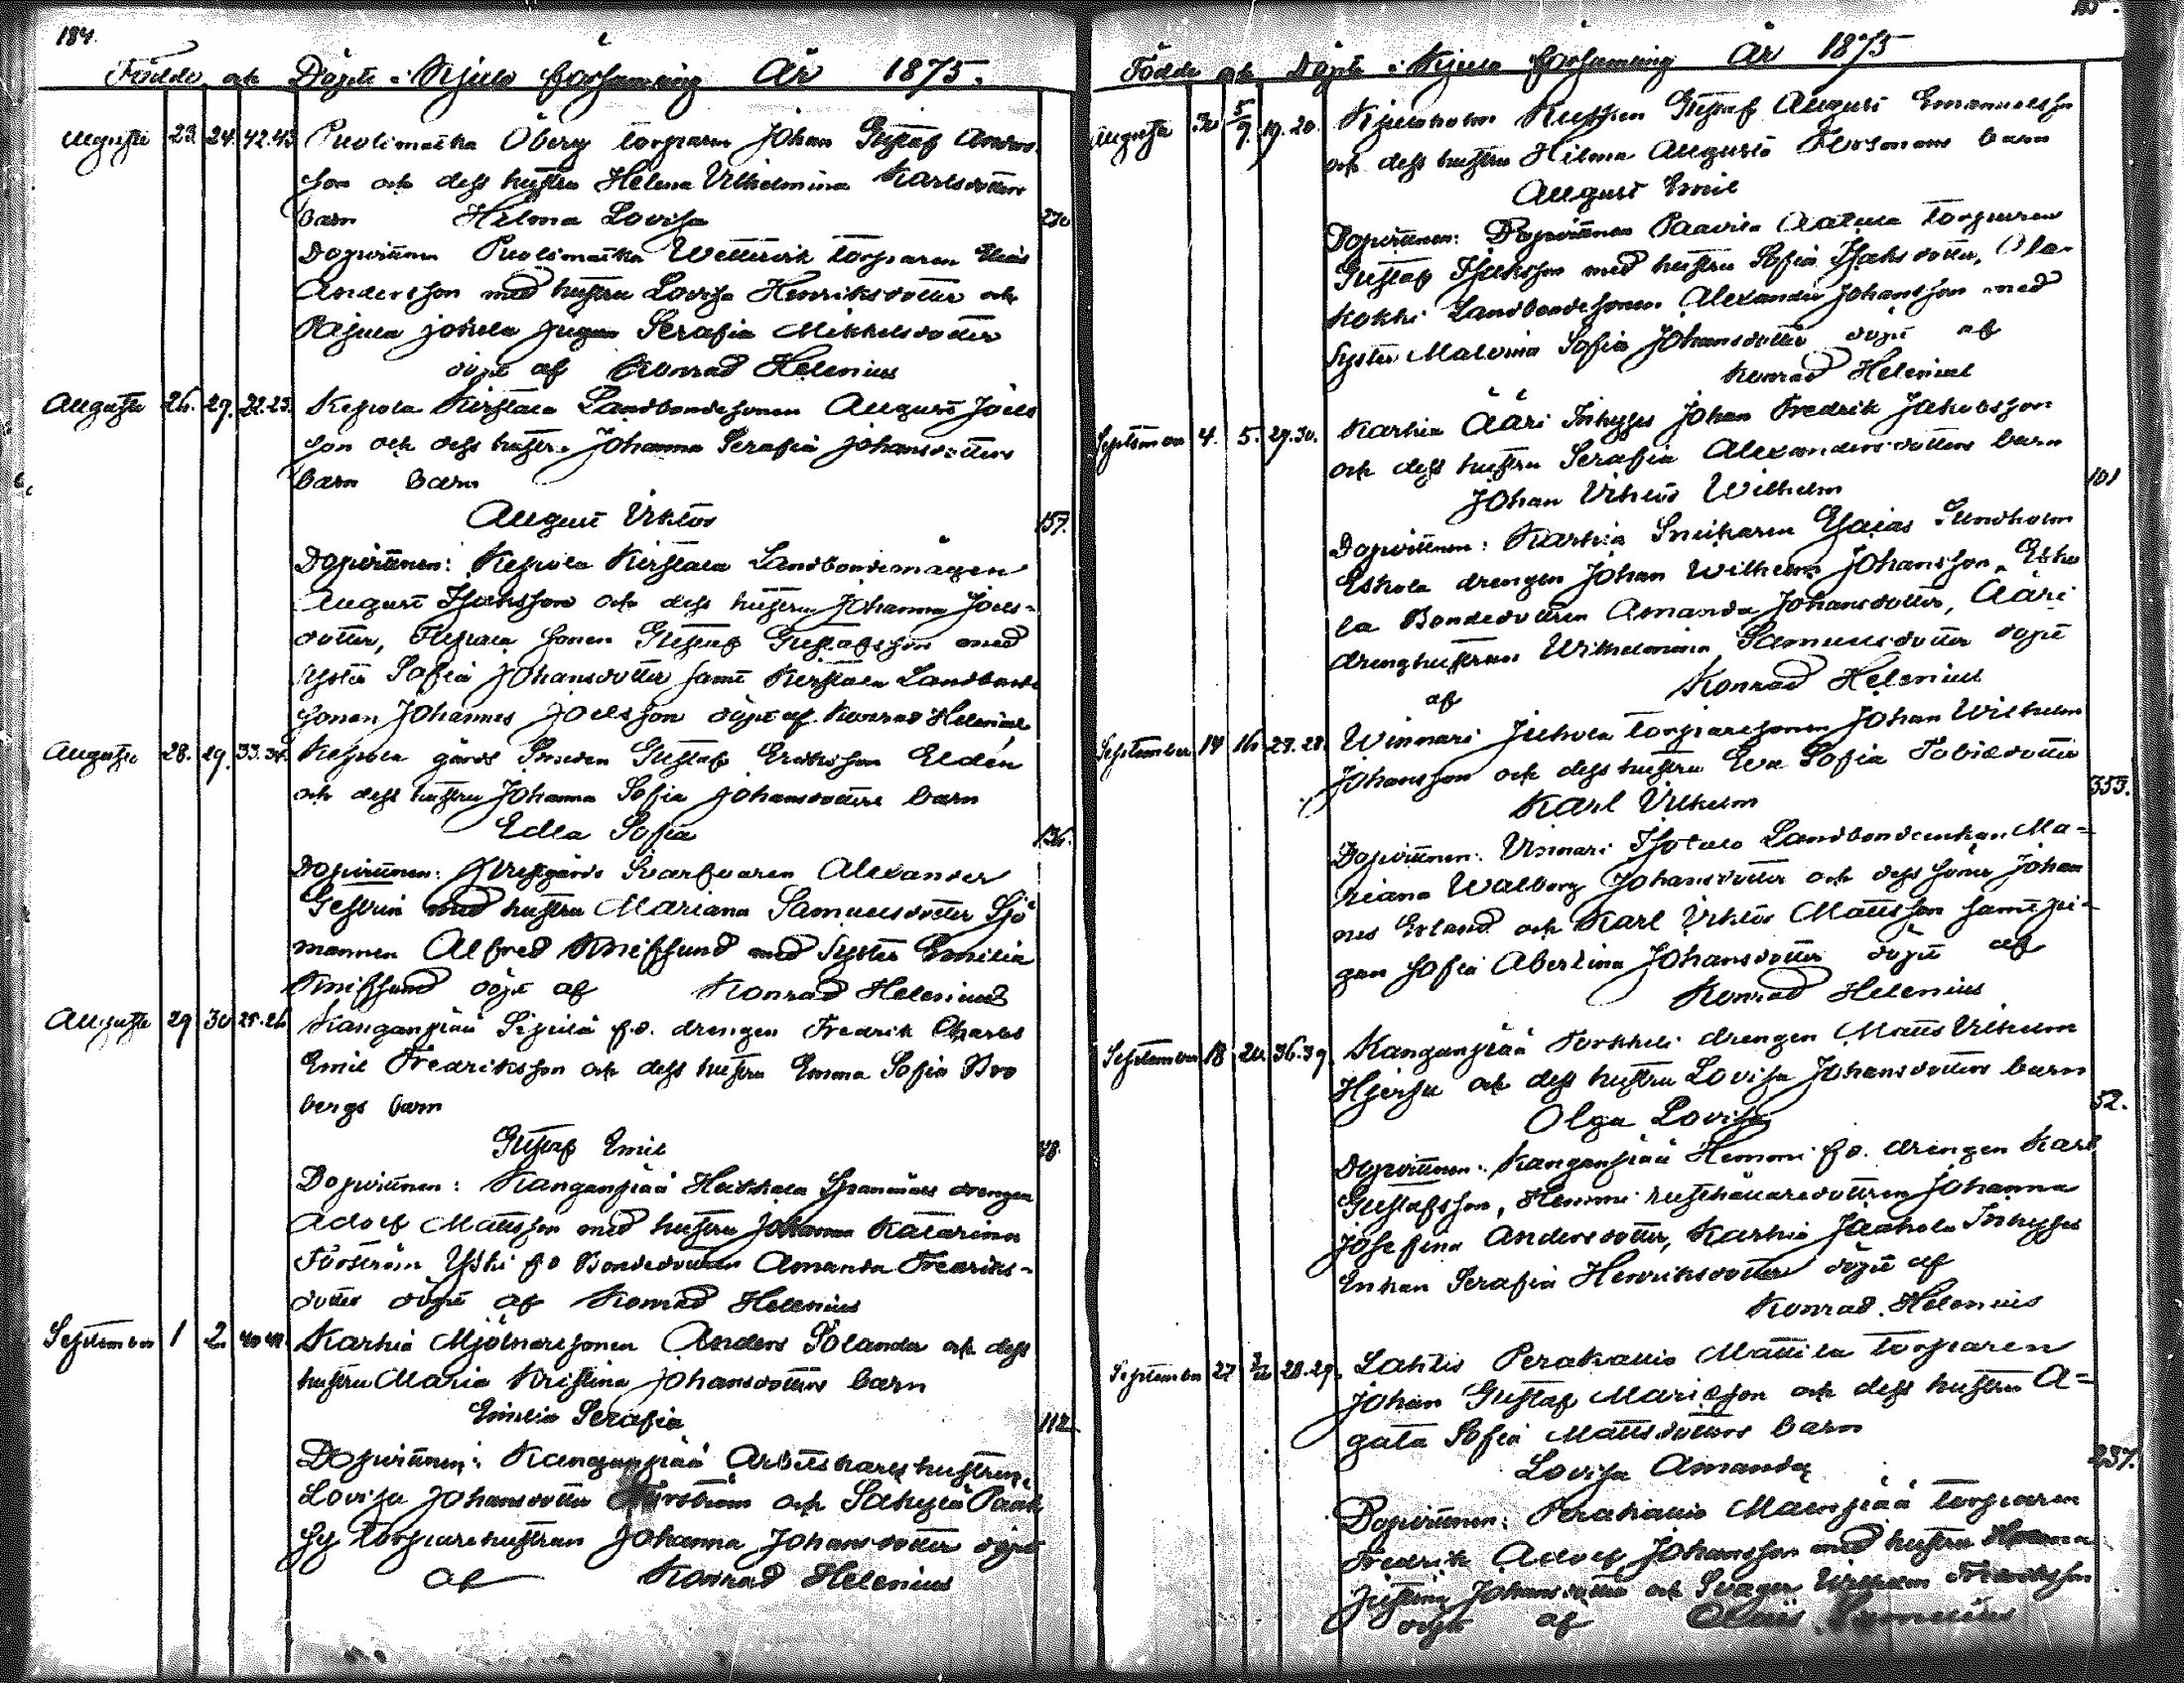 184.
Födde och Döpte i Kjulo församling År 1875.
Augusti 23. 24. 42.43 Puolimatka Öberg torparn Johan Gustaf Anders-
son och dess hustru Helena Vilhelmina Karlsdotters
barn Hilma Lovisa 270
Dopvittnen Puolimatka Wettervik torparen Elias
Andersson med hustru Lovisa Henriksdotter och
Pajula Jokela pigan Serafia Mikkelsdotter
döpt af Konrad Helenius
Augusti 26. 29. 22.23. Kepola Kirstala Landbondesonen August Joels
son och dess hustru Johanna Serafia Johansdotters
barn barn
August Viktor 157.
Dopvittnen: Kepola Kirstala Landbondemågen
August Isaksson och dess hustru Johanna Joels-
dotter, sonen Gustaf Gustafsson med
syster Sofia Johansdotter samt Kirstala Landbonde
sonen Johannes Joelsson döpt af Konrad Helenius
Augusti 28. 29. 33.34. Kepola gårds Smeden Gustaf Eriksson Eldén
och dess hustru Johanna Sofia Johansdotters barn
Edla Sofia 136.
Dopvittnen: Prestgårds Svarfvaren Alexander
med hustru Mariana Samuelsdotter Sjö
mannen Alfred Knifsund med syster Emilia
Knifsund döpt af Konrad Helenius
Augusti 29 30 25.26 Kanganpää Sipilä f.d. drengen Fredrik Charles
Emil Fredriksson och dess hustru Emma Sofia Bro
bergs barn
Gustaf Emil 48.
Dopvittnen: Kanganpää Heikkala Spanmåls drengen
Adolf Mattsson med hustru Johanna Katarina
Forsström Yski f.d. Bondedottern Amanda Fredriks-
dotter döpt af Konrad Helenius
September 1 2. Karhia Mjölnaresonen Anders Solander och dess
hustru Maria Kristina Johansdotters barn
Emilia Serafia 112
Dopvittnen: Kanganpää Arbetskarls hustrun,
Lovisa Johansdotter och
torparehustrun Johanna Johansdotter döpt
af Konrad Helenius
Födde och Döpte i Kjulo församling År 1875
Augusti 30 5/9. 19.20. Kjuloholm Kusken Gustaf August Emanuelsson
och dess hustru Hilma Augusta barn
August Emil
Dopvittnen: Dopvittnen Paavila torparen
Gustaf Isaksson med hustru Sofia Isaksdotter,
Kokki Landbondesonen Alexander Johansson med
syster Malvina Sofia Johansdotter döpt af
Konrad Helenius
September 4. 5. 29.30. Karhia Ääri Inhyses Johan Fredrik Jakobsson
och dess hustru Serafia Alexandersdotters barn
Johan Vihtor Wilhelm 101
Dopvittnen: Karhia Snickaren Esaias Sundholm
Eskola drengen Johan Wilhelm Johansson, Esko
la Bondedottren Amanda Johansdotter, Ääri
drenghustrun Wilhelmina Samuelsdotter döpt
af Konrad Helenius
September 14 16. 27.28. Winnari Juhola torparesonen Johan Wilhelm
Johansson och dess hustru Eva Sofia Tobiedotter
Karl Vilhelm 353.
Dopvittnen: Vinnari Isotalo Landbondeenkan Ma-
riana Walborg Johansdotter och dess söner Johan
nes Erland och Karl Viktor Mattsson samt pi-
gan Sofia Abertina Johansdotter döpt af
Konrad Helenius
September 18 20. 36.39. Kanganpää Torkkeli drengen Matts Vilhelm
och dess hustru Lovisa Johansdotters barn
Olga Lovisa 52.
Dopvittnen: Kanganpää Hemmi f.d. drengen Karl
Gustafsson, Hemmi rusthållaredottren Johanna
Josefina Andersdotter, Karhia Jaakola Inhyses
Enkan Serafia Henriksdotter döpt af
Konrad Helenius
September 27 28.29. Lahtis Perakallio Mattila torparen
Johan Gustaf Mariasson och dess hustru A-
gata Sofia Mattsdotters barn
Lovisa Amanda 237.
Dopvittnen: Perakallio torparen
Fredrik Adolf Johansson med hustru
Justina Johansdotter och Svager Vilhelm Fredriksson
döpt af